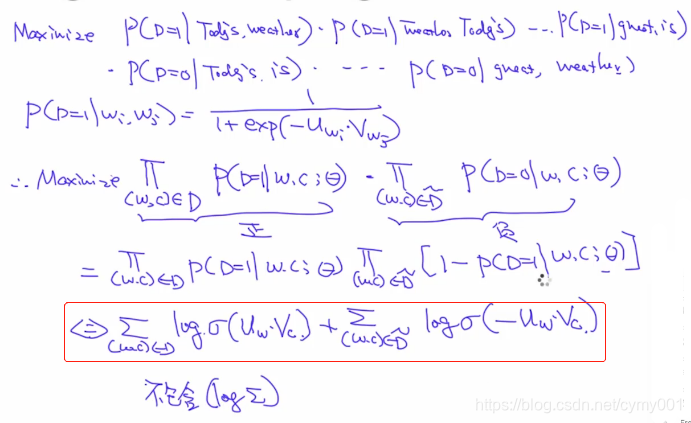 Maximize P(D=1|Today's, weather)·P(D=1|Weather, Today's) ---·P(D=1|great, is)
·P(D=0|Today's, is)· --- P(D=0|great, weather)
P(D=1|wi, wj) = 1/(1+exp(-Uwi·Vwj))
∴ Maximize ∏(w,c)∈D P(D=1|w.c;θ) · ∏(w.c)∈D̃ P(D=0|w,c;θ)
正 负
= ∏(w.c)∈D P(D=1|w.c;θ) ∏(w.c)∈D̃ [1-P(D=1|w.c;θ)]
⇔ Σ(w.c)∈D log σ(Uw·Vc) + Σ(w.c)∈D̃ log σ(-Uw·Vc)
不包含(log Σ)
https://blog.csdn.net/cymy001